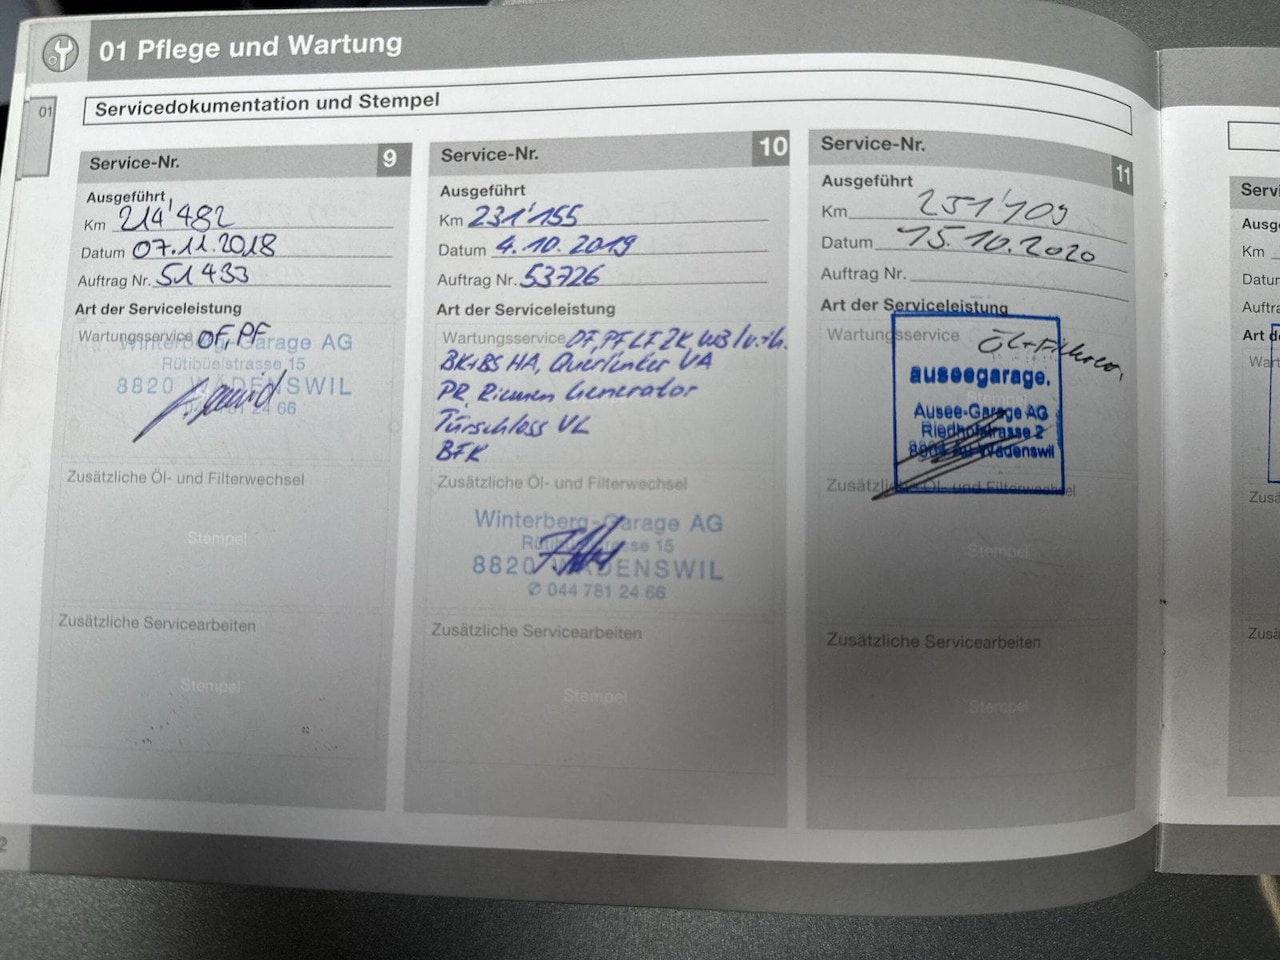 01 Pflege und Wartung
01
Servicedokumentation und Stempel
Service-Nr. 9
Ausgeführt
Km 214'482
Datum 07.11.2018
Auftrag Nr. 51433
Art der Serviceleistung
Wartungsservice OF, PF
Winterberg-Garage AG
Rütibüelstrasse 15
8820 WÄDENSWIL
044 781 24 66
Zusätzliche Öl- und Filterwechsel
Stempel
Zusätzliche Servicearbeiten
Stempel
Service-Nr. 10
Ausgeführt
Km 231'155
Datum 4.10.2019
Auftrag Nr. 53726
Art der Serviceleistung
Wartungsservice OF, PF LF ZK, WB/v.+h.
BK+BS HA, Querlenker VA
PR, Riemen Generator
Türschloss VL
BFK
Zusätzliche Öl- und Filterwechsel
Winterberg-Garage AG
Rütibüelstrasse 15
8820 WÄDENSWIL
✆ 044 781 24 66
Zusätzliche Servicearbeiten
Stempel
Service-Nr. 11
Ausgeführt
Km 251'109
Datum 15.10.2020
Auftrag Nr.
Art der Serviceleistung
Wartungsservice
auseegarage.
Ausee-Garage AG
Riedhofstrasse 2
8804 Au Wädenswil
Zusätzliche Öl- und Filterwechsel
Stempel
Zusätzliche Servicearbeiten
Stempel
2
Servi
Ausge
Km
Datum
Auftra
Art de
Wart
Zusä
Zusä